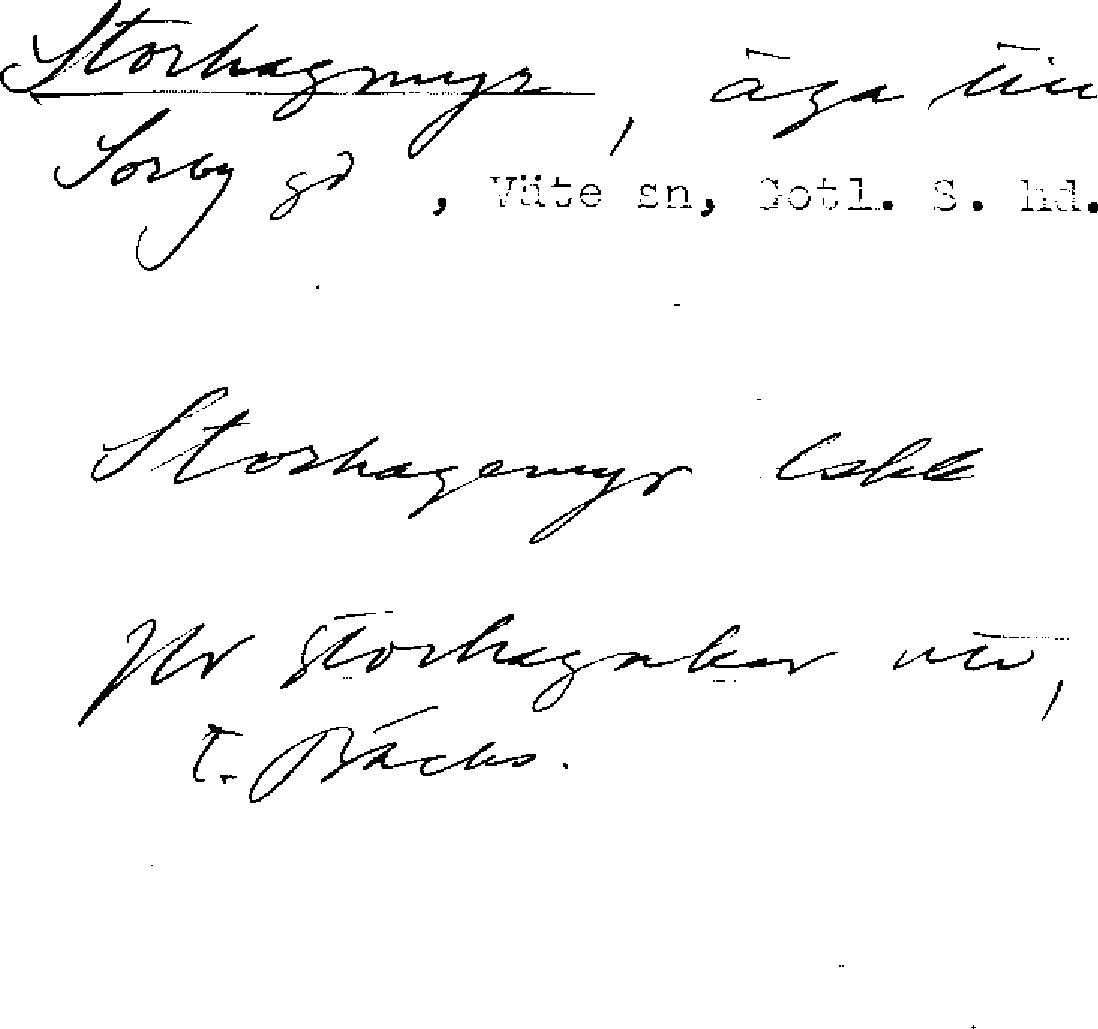 Storhagmyr, äga till
Sorby gd, Väte sn, Gotl. S. hd.
Storhagemyr Lskk
Jfr Storhagakar
t. Bäcks.